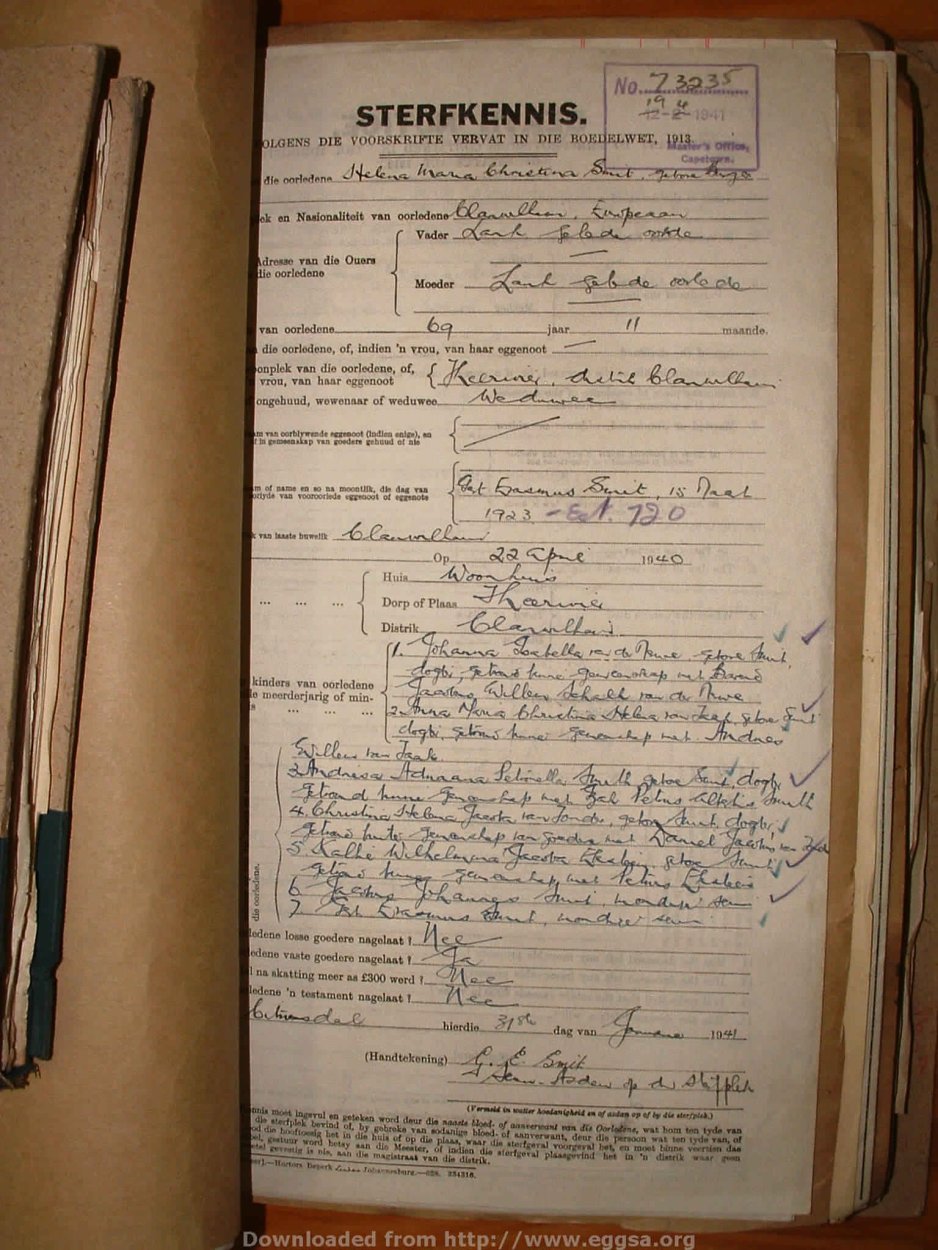 No. 73235
19 4
12-2-1941
Master's Office,
Capetown.
STERFKENNIS.
OLGENS DIE VOORSKRIFTE VERVAT IN DIE BOEDELWET, 1913.
die oorledene Helena Maria Christina Smit, gebore
ek en Nasionaliteit van oorledene Clanwilliam, Europeaan
Vader Lank gelede oorlede
Adresse van die Ouers
die oorledene
Moeder Lank gelede oorlede
van oorledene 69 jaar 11 maande.
die oorledene, of, indien 'n vrou, van haar eggenoot
oonplek van die oorledene, of,
vrou, van haar eggenoot
distrik Clanwilliam
ongehuud, wewenaar of weduwee Weduwee
am van oorblywende eggenoot (indien enige), en
f in gemeenskap van goedere gehuud of nie
am of name en so na moontlik, die dag van
oorlyde van vooroorlede eggenoot of eggenote
Gert Erasmus Smit, 15 Maart
1923 - Est. 720
k van laaste huwelik Clanwilliam
Op 22 April 1940
Huis Woonhuis
Dorp of Plaas
Distrik Clanwilliam
kinders van oorledene
le meerderjarig of min-
1. Johanna Isabella van der Merwe, gebore Smit,
dogter, getroud binne gemeenskap met Barend
Jacobus Willem Schalk van der Merwe
2. Anna Maria Christina Helena van Zaak, gebore Smit
dogter, getroud binne gemeenskap met Andries
Willem van Zaak
3. Andresa Adriaana Petronella Smith gebore Smit, dogter
getroud binne gemeenskap met Petrus Smith
4. Christina Helena Jacoba van gebore Smit, dogter,
getroud buite gemeenskap van goedere met Daniel Jacobus van
5. Wilhelmina Jacoba gebore Smit
getroud binne gemeenskap met Petrus
6. Jacobus Johannes Smit, mondige seun
7. Gert Erasmus Smit, mondige seun
die oorledene.
ledene losse goedere nagelaat? Nee
ledene vaste goedere nagelaat? Ja
l na skatting meer as £300 werd? Nee
ledene 'n testament nagelaat? Nee
Citrusdal hierdie 31ste dag van Januarie 1941
(Handtekening) G. E. Smit
Seun. op die
(Vermeld in watter hoedanigheid en of aadan op of by die sterfplek.)
nnis moet ingevul en geteken word deur die naaste bloed- of aanverwant van die Oorledene, wat hom ten tyde van
die sterfplek bevind of, by gebreke van sodanige bloed- of aanverwant, deur die persoon wat ten tyde van, of
od die hooftoesig het in die huis of op die plaas, waar die sterfgeval voorgeval het, en moet binne veertien dae
bel, gestuur word hetsy aan die Meester, of indien die sterfgeval plaasgevind het in 'n distrik waar geen
stel gevestig is nie, aan die magistraat van die distrik.
Hortors Beperk Johannesburg.
Downloaded from http://www.eggsa.org